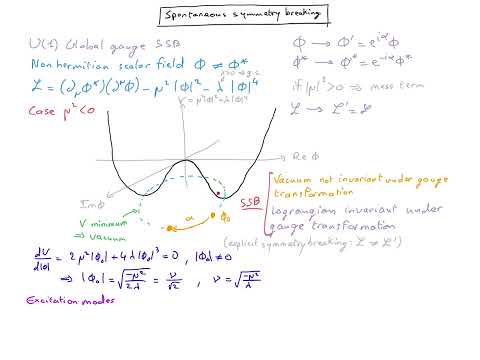 Spontaneous symmetry breaking
U(1) Global gauge SSB
Nonhermitian scalar field Φ ≠ Φ*
ℒ = (∂μΦ*)(∂^μΦ) − μ²|Φ|² − λ|Φ|⁴
Φ → Φ' = e^{iα}Φ
Φ* → Φ'* = e^{-iα}Φ*
if |μ|² > 0 ⇒ mass term
ℒ → ℒ' = ℒ
Case μ² < 0
V = μ²|Φ|² + λ|Φ|⁴
Re Φ
Im Φ
V minimum
⇒ vacuum
α
Φ₀
SSB
Vacuum not invariant under gauge
transformation
Lagrangian invariant under
gauge transformation
(explicit symmetry breaking: ℒ ≠ ℒ')
dV/d|Φ| = 2μ²|Φ₀| + 4λ|Φ₀|³ = 0, |Φ₀| ≠ 0
⇒ |Φ₀| = √(−μ²/2λ) = v/√2, v = √(−μ²/λ)
Excitation modes